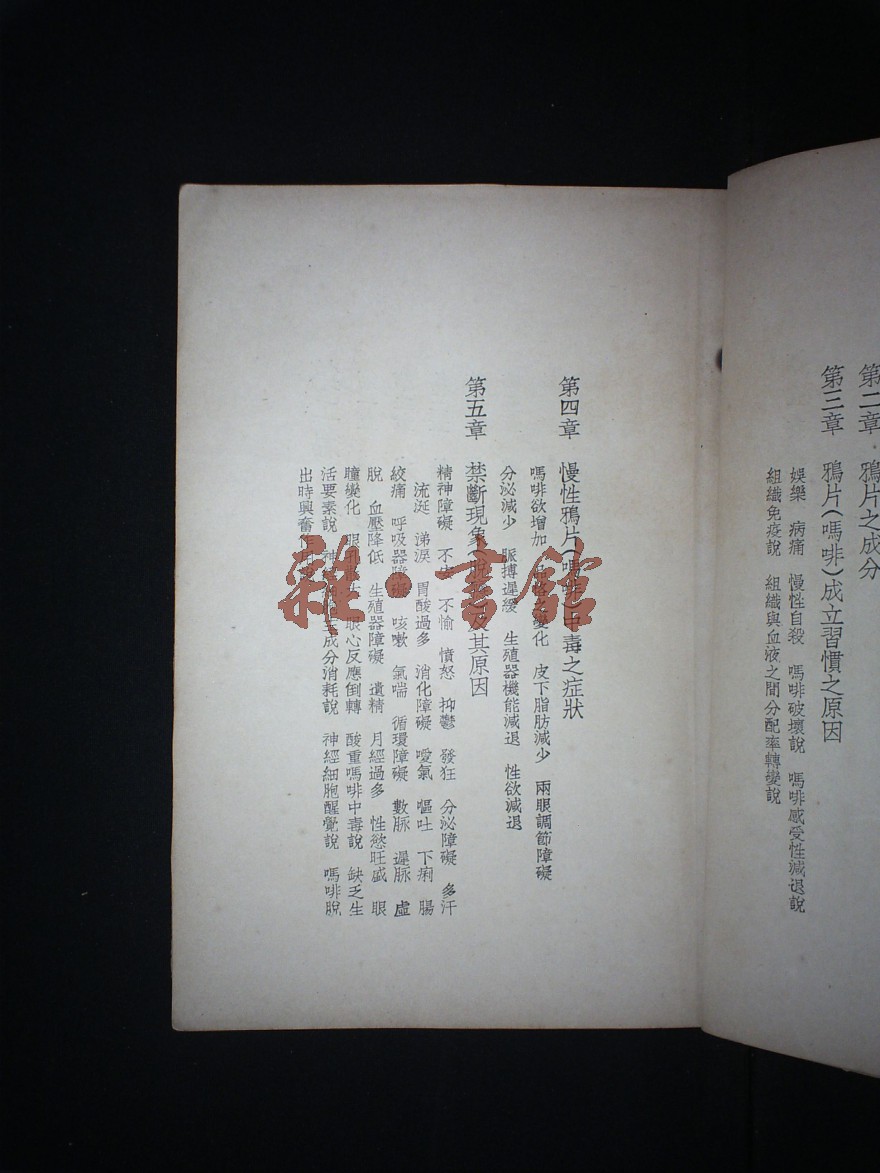 第二章 鴉片之成分
第三章 鴉片(嗎啡)成立習慣之原因
娛樂 病痛 慢性自殺 嗎啡破壞說 嗎啡感受性減退說
組織免疫說 組織與血液之間分配率轉變說
第四章 慢性鴉片(嗎啡中毒之症狀
嗎啡欲增加 變化 皮下脂肪減少 兩眼調節障礙
分泌減少 脈搏遲緩 生殖器機能減退 性欲減退
第五章 禁斷現象 及其原因
精神障礙 不 不愉 憤怒 抑鬱 發狂 分泌障礙 多汗
流涎 涕淚 胃酸過多 消化障礙 噯氣 嘔吐 下痢 腸
絞痛 呼吸器障礙 咳嗽 氣喘 循環障礙 數脈 遲脈 虛
脫 血壓降低 生殖器障礙 遺精 月經過多 性慾旺盛 眼
瞳變化 眼心反應倒轉 酸重嗎啡中毒說 缺乏生
活要素說 神 成分消耗說 神經細胞醒覺說 嗎啡脫
出時興奮作
雜·書館